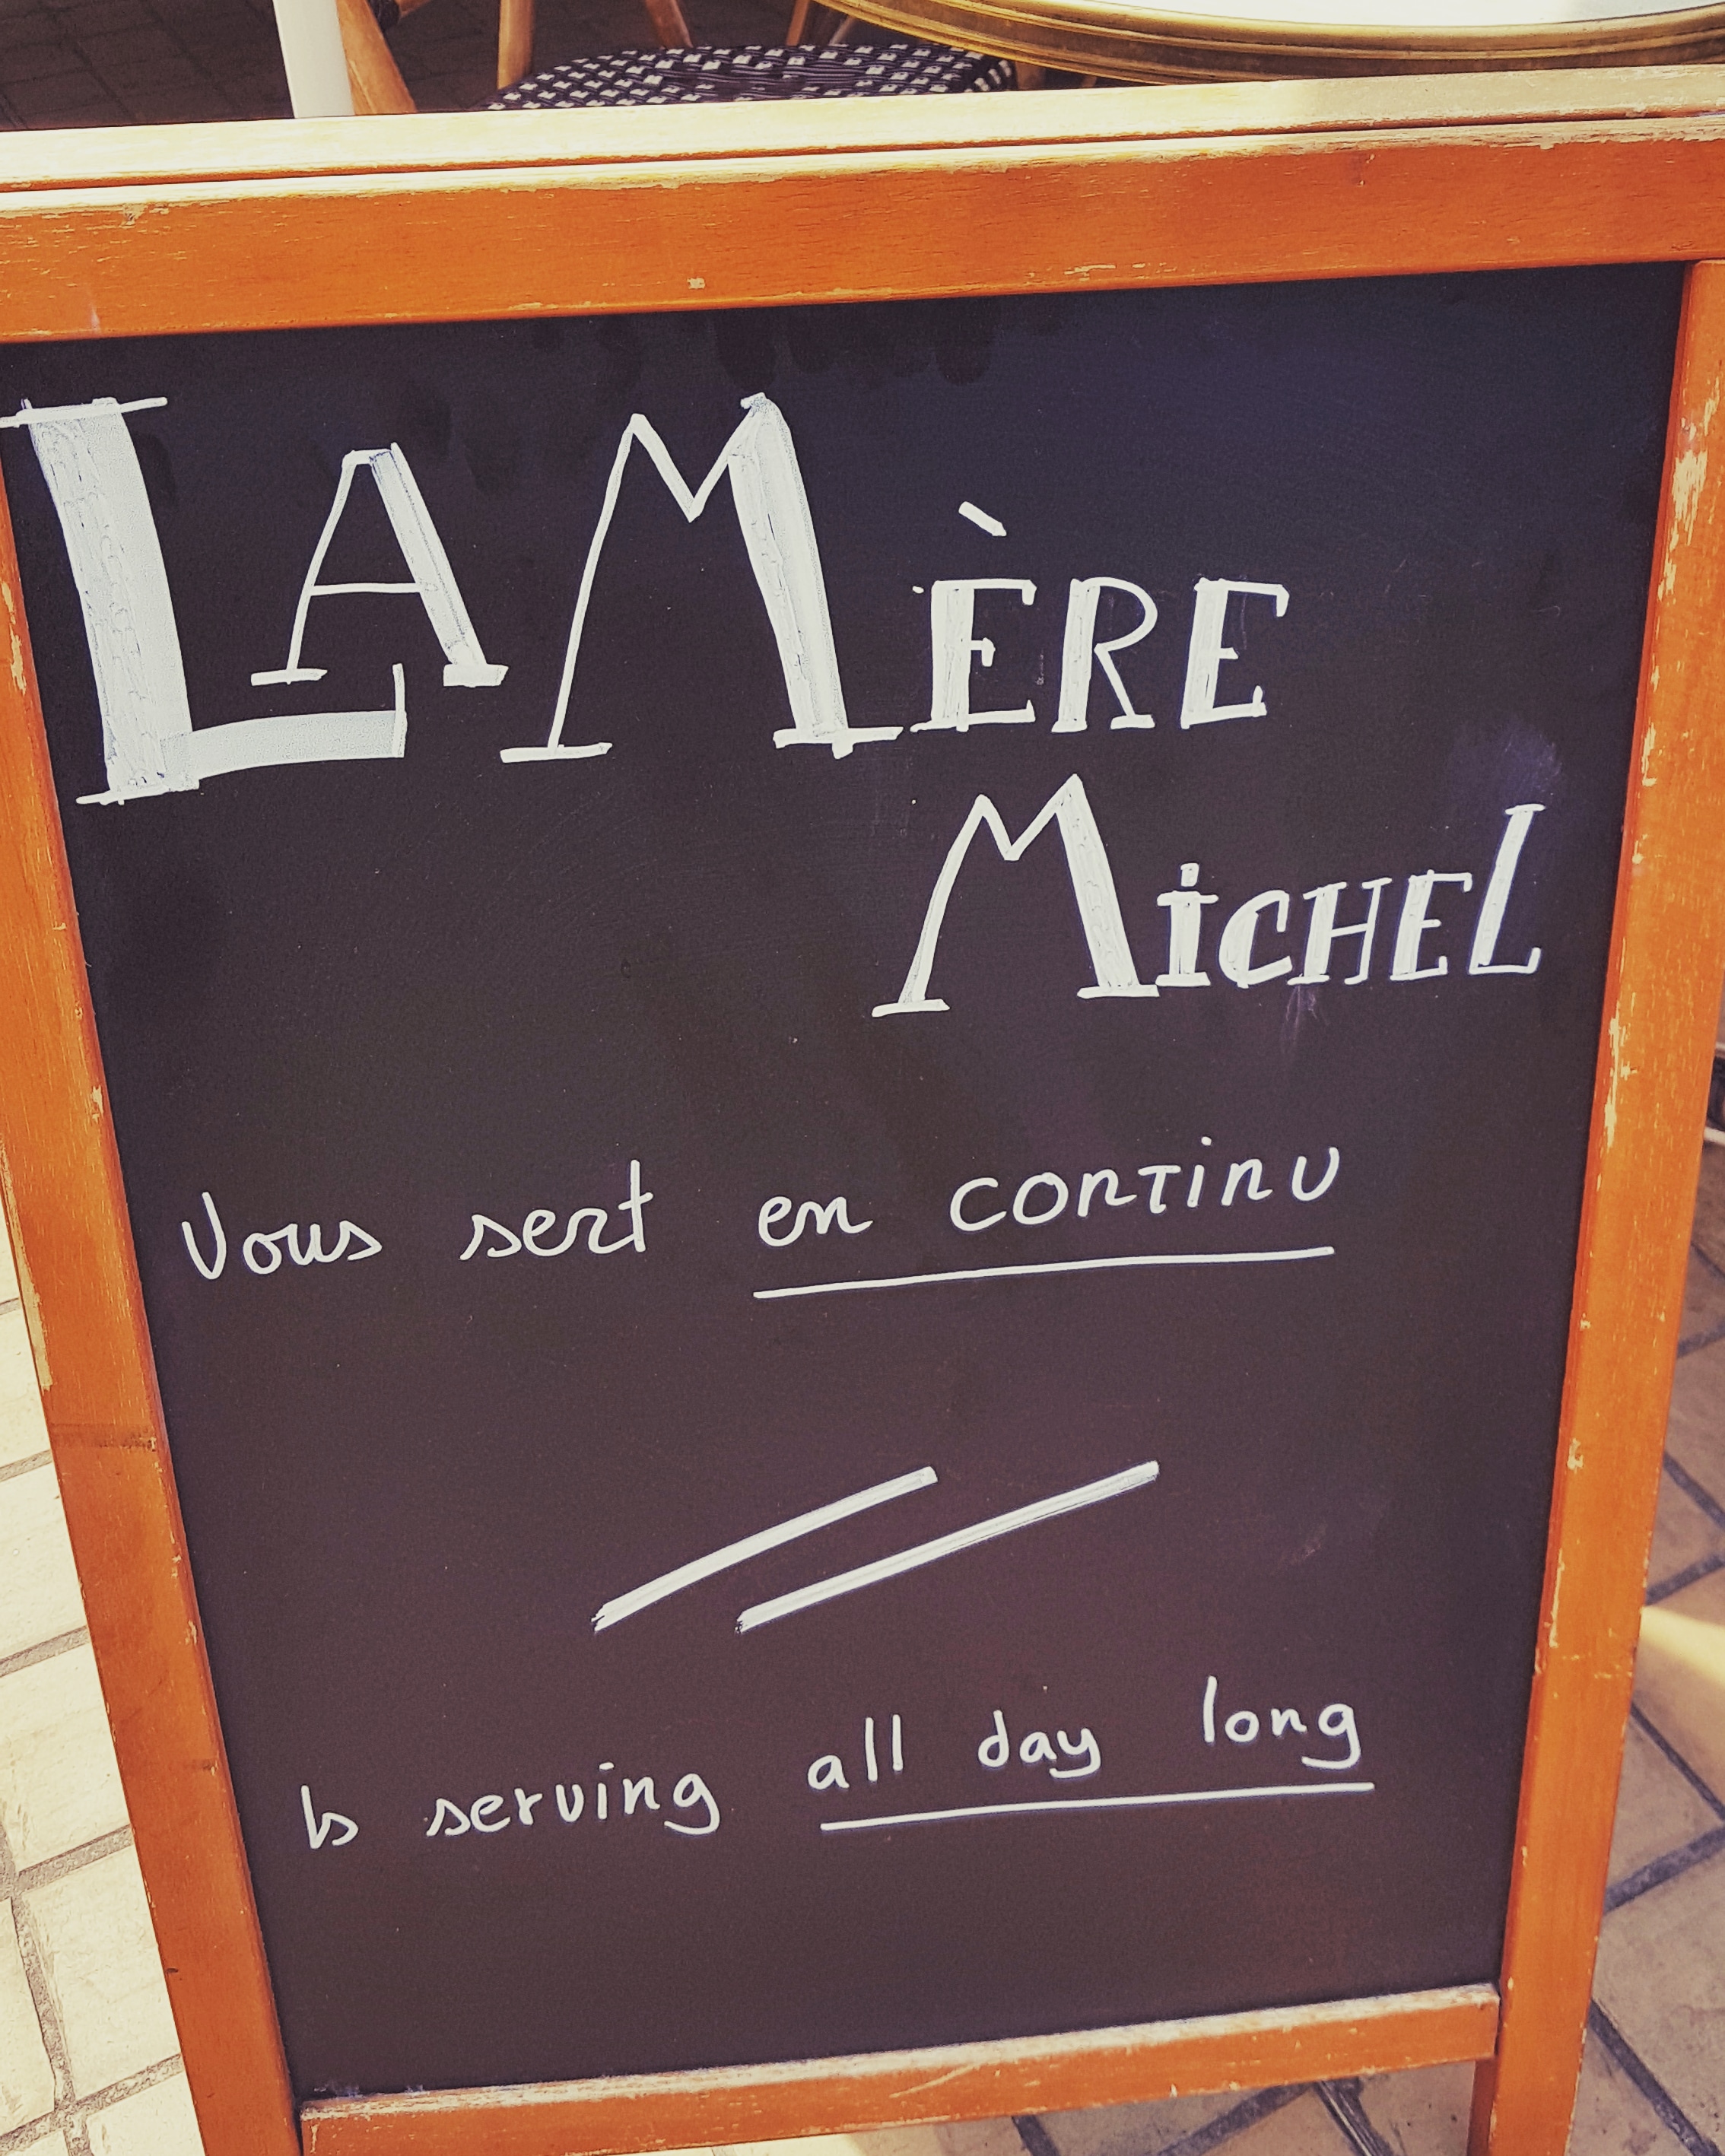 LA MÈRE
MiCHEL
Vous sert en continu
//
Is serving all day long